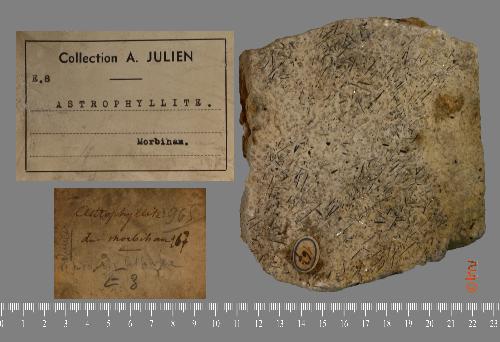 Collection A. JULIEN
E.8
ASTROPHYLLITE.
Morbihan.
Astrophyllite 965
du morbihan 67
E 8
0 1 2 3 4 5 6 7 8 9 10 11 12 13 14 15 16 17 18 19 20 21 22 23